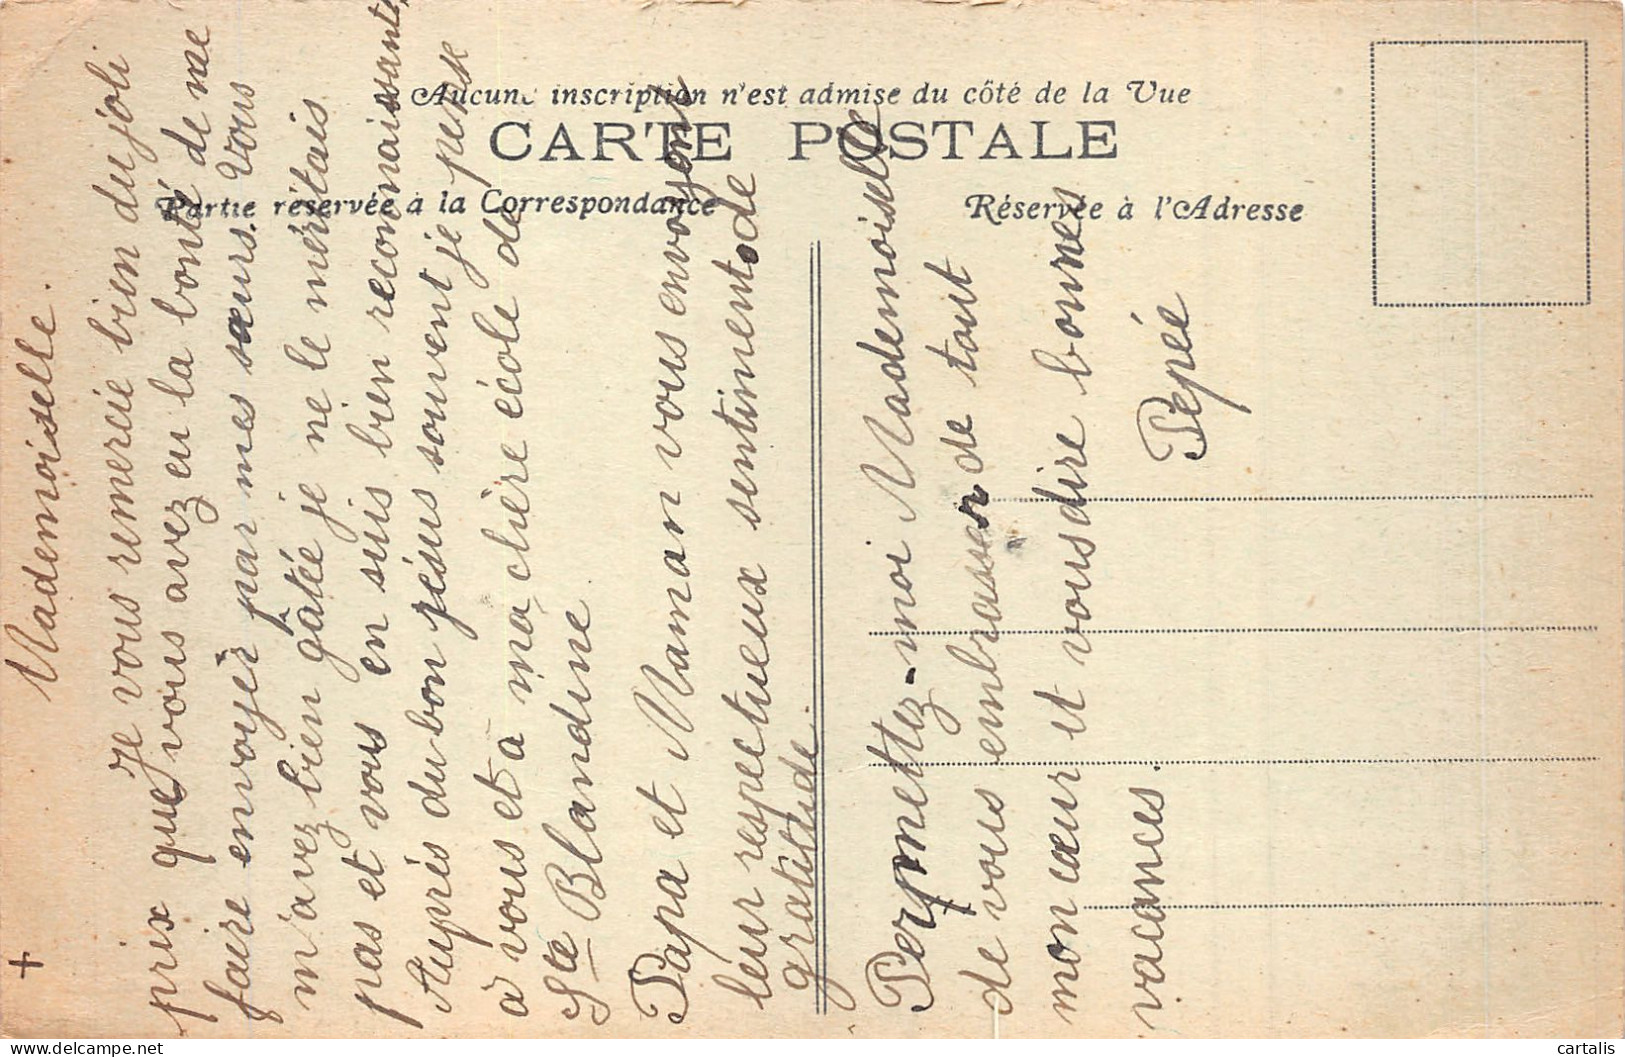 Aucune inscription n'est admise du côté de la Vue
CARTE POSTALE
Partie réservée à la Correspondance
Réservée à l'Adresse
+
Mademoiselle.
Je vous remercie bien du joli
prix que vous avez eu la bonté de me
faire envoyer par mes sœurs. Vous
m'avez bien gâtée je ne le méritais
pas et vous en suis bien reconnaissante,
Auprès du bon jésus souvent je pense
à vous et à ma chère école de
Ste Blandine
Papa et Maman vous envoyent
leur respectueux sentiment de
gratitude.
Permettez-moi Mademoiselle
de vous embrasser de tout
mon cœur et vous dire bonnes
vacances.
Pepée
cartalis